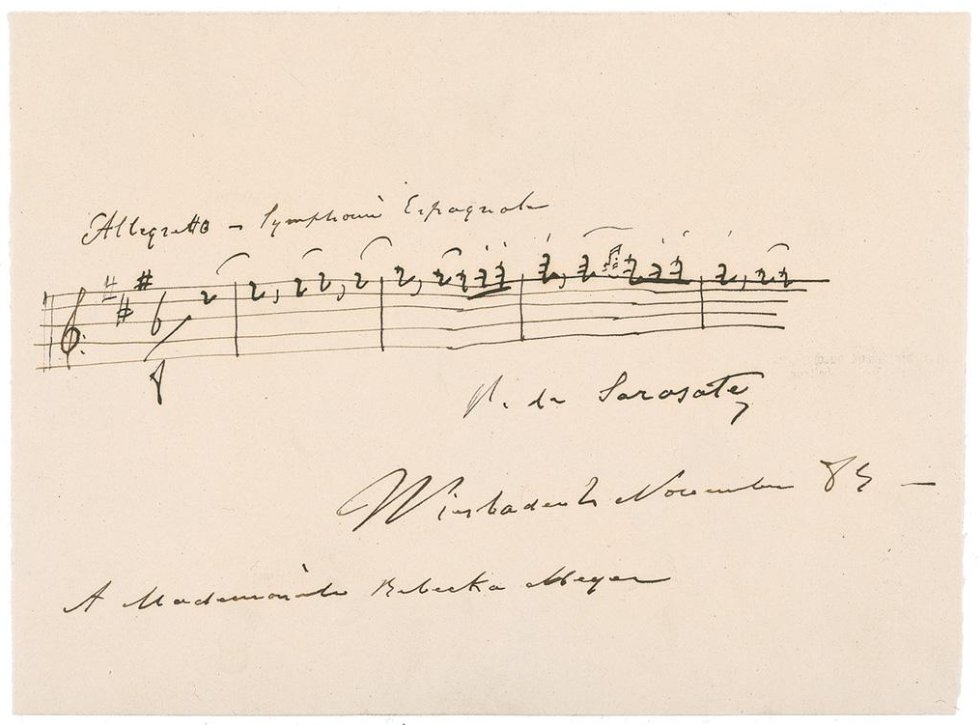 Allegretto – Symphonie Espagnole
P. de Sarasate
Wiesbaden 2 November 85 –
A Mademoiselle Rebecka Meyer